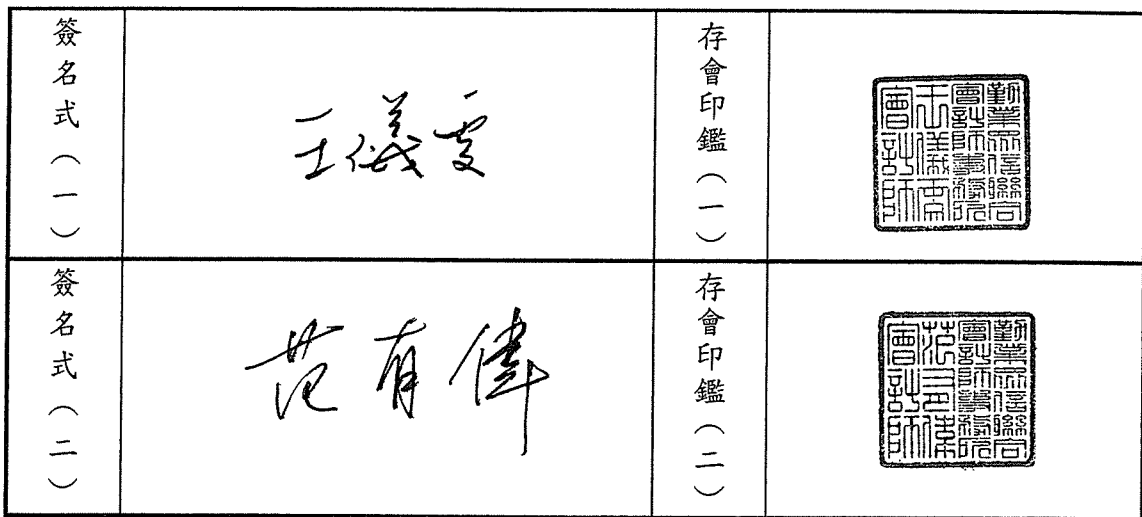 簽名式(一)
王儀雯
存會印鑑(一)
勤業眾信聯合
會計師事務所
王儀雯
會計師
簽名式(二)
范有偉
存會印鑑(二)
勤業眾信聯合
會計師事務所
范有偉
會計師